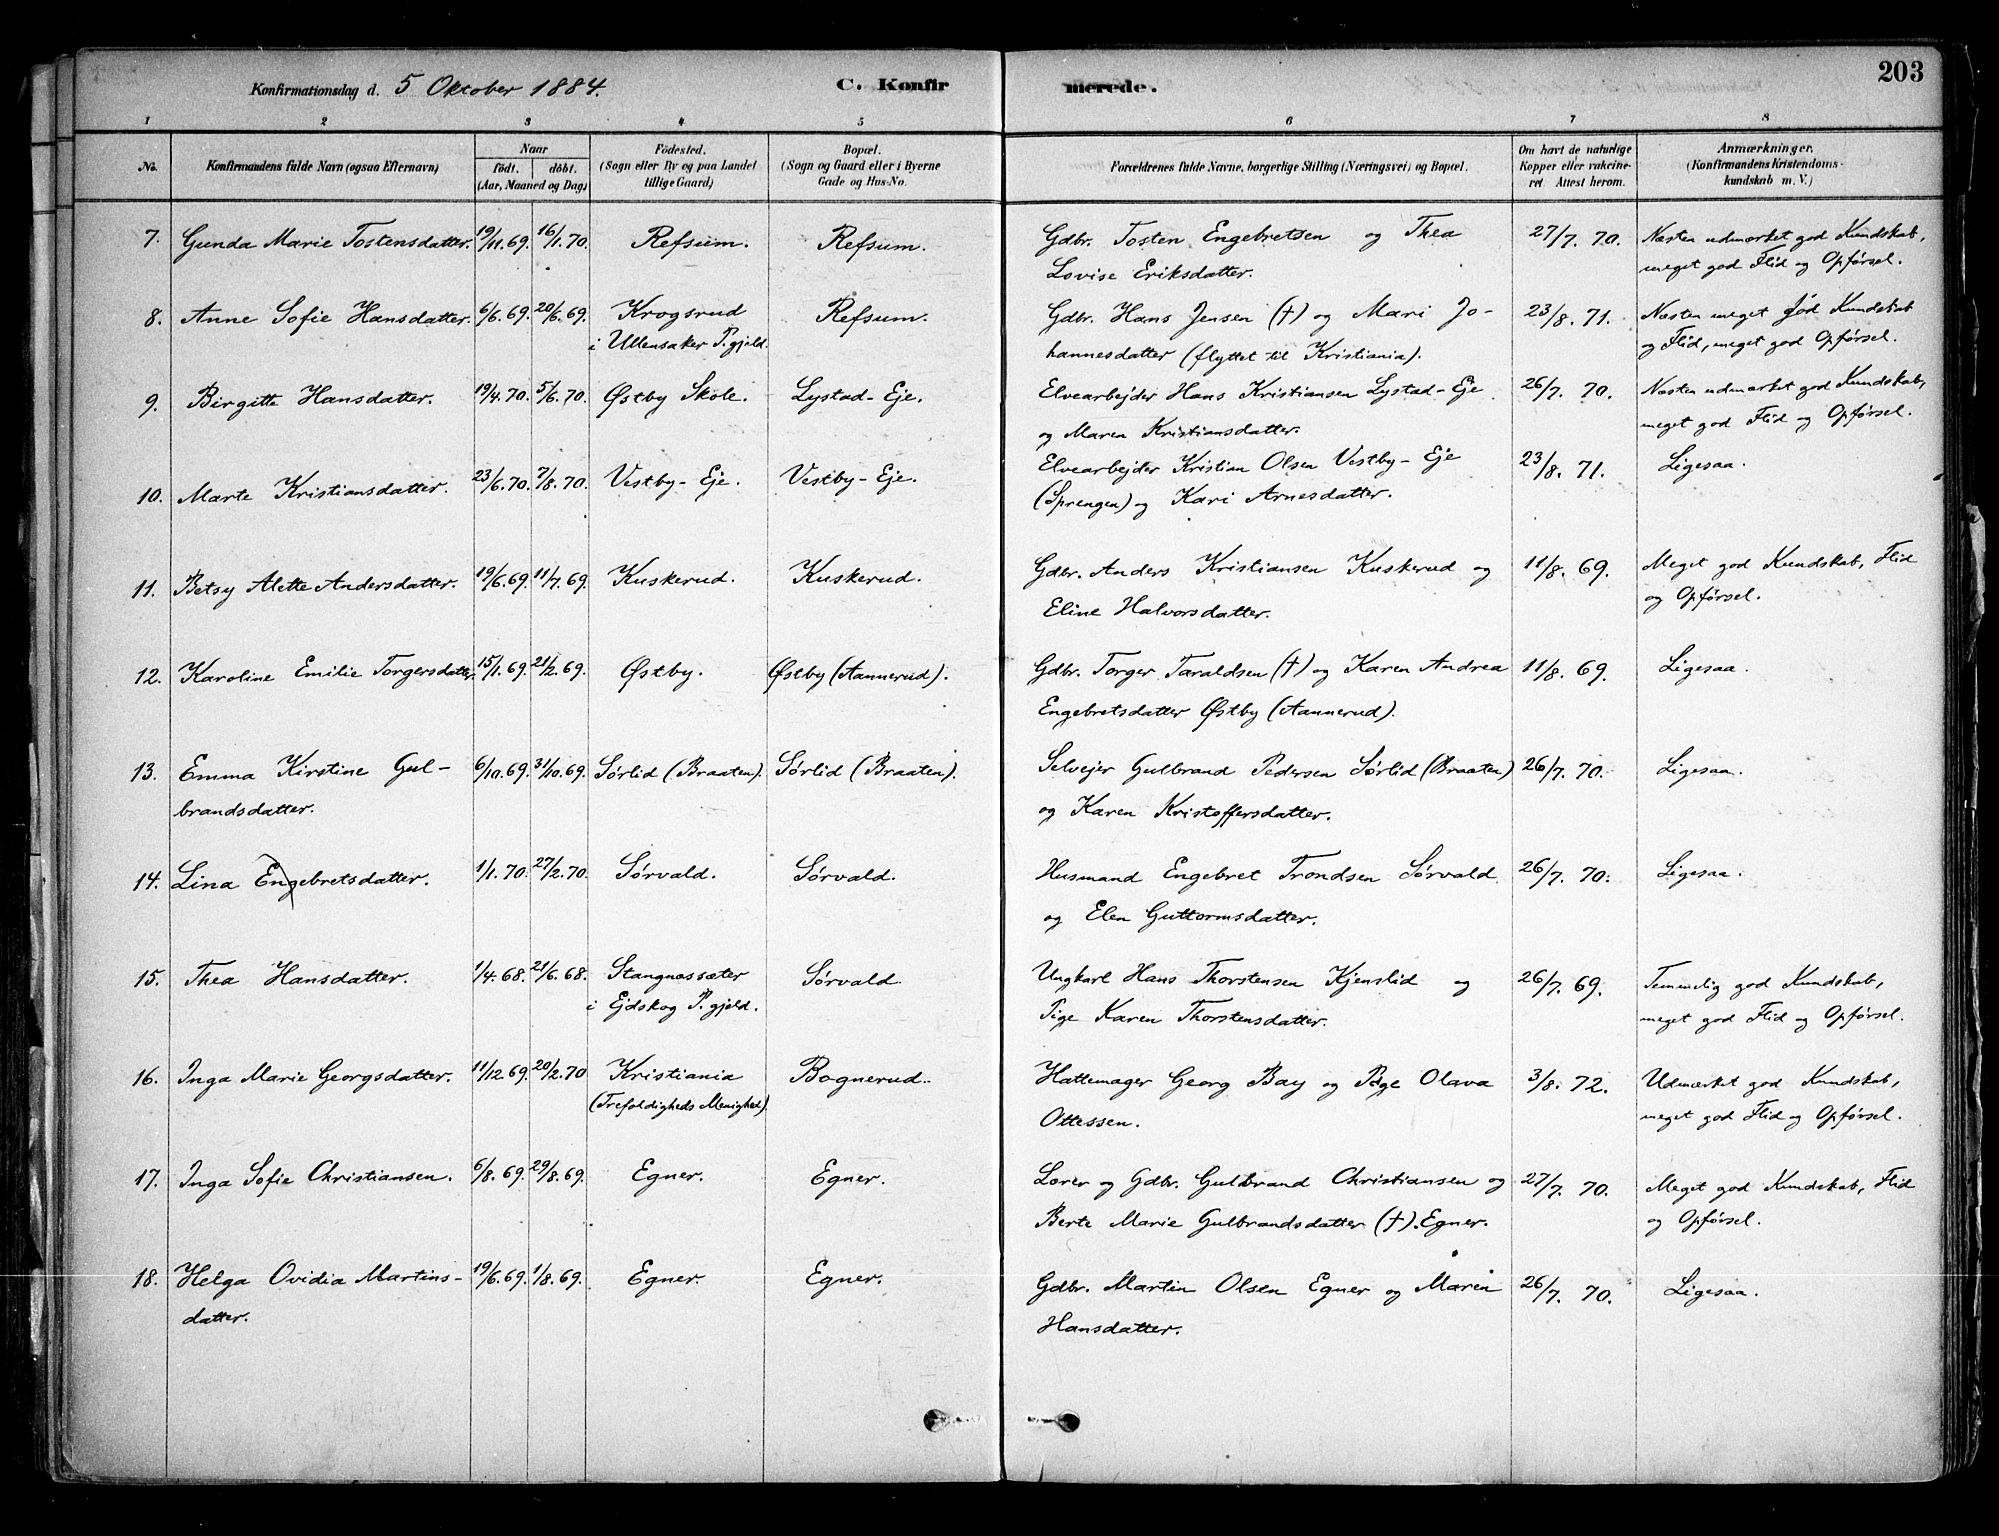 203
Konfirmationsdag d. 5 Oktober 1884. C. Konfirmerede.
1 2 3 4 5 6 7 8
No. Konfirmandens fulde Navn (ogsaa Efternavn) Naar födt. döbt. (Aar, Maaned og Dag) Födested. (Sogn eller By og paa Landet tillige Gaard) Bopæl. (Sogn og Gaard eller i Byerne Gade og Hus-No. Forældrenes fulde Navne, borgerlige Stilling (Næringsvei) og Bopæl. Om havt de naturlige Kopper eller vakcineret Attest herom. Anmærkninger. (Konfirmandens Kristendomskundskab m. V.)
7. Gunda Marie Tostensdatter. 19/11.69. 16/1.70. Refsum. Refsum. Gdbr. Tosten Engebretsen og Thea 27/7. 70. Næsten udmærket god Kundskab,
Lovise Eriksdatter. meget god Flid og Opførsel.
8. Anne Sofie Hansdatter. 6/6.69. 20/6.69. Krogsrud Refsum. Gdbr. Hans Jensen (†) og Mari Jo- 23/8. 71. Næsten meget god Kundskab
i Ullensaker P.gjeld. hannesdatter (flyttet til Kristiania). og Flid, meget god Opførsel.
9. Birgitte Hansdatter. 19/4.70. 5/6.70. Østby Skole. Lystad-Eje. Elvearbejder Hans Kristiansen Lystad-Eje 26/7. 70. Næsten udmærket god Kundskab,
og Maren Kristiansdatter. meget god Flid og Opførsel.
10. Marte Kristiansdatter. 23/6.70. 7/8.70. Vestby-Eje. Vestby-Eje. Elvearbejder Kristian Olsen Vestby-Eje 23/8. 71. Ligesaa.
(Sprengen) og Kari Arnesdatter.
11. Betsy Alette Andersdatter. 19/6.69. 11/7.69. Kuskerud. Kuskerud. Gdbr. Anders Kristiansen Kuskerud og 11/8. 69. Meget god Kundskab, Flid
Eline Halvorsdatter. og Opførsel.
12. Karoline Emilie Torgersdatter. 15/1.69. 21/2.69. Østby. Østby (Aannerud). Gdbr. Torger Taraldsen (†) og Karen Andrea 11/8. 69. Ligesaa.
Engebretsdatter Østby (Aannerud).
13. Emma Kirstine Gul- 6/10.69. 31/10.69. Sørlid (Braaten). Sørlid (Braaten). Selvejer Gulbrand Pedersen Sørlid (Braaten) 26/7. 70. Ligesaa.
brandsdatter. og Karen Kristoffersdatter.
14. Lina Engebretsdatter. 1/1.70. 27/2.70. Sørvald. Sørvald. Husmand Engebret Trondsen Sørvald 26/7. 70. Ligesaa.
og Elen Guttormsdatter.
15. Thea Hansdatter. 1/4.68. 21/6.68. Stangnessæter Sørvald. Ungkarl Hans Thorstensen Kjenslid og 26/7. 69. Temmelig god Kundskab,
i Ejdskog P.gjeld. Pige Karen Thorstensdatter. meget god Flid og Opførsel.
16. Inga Marie Georgsdatter. 11/12.69. 20/2.70 Kristiania Bognerud. Hattemager Georg Bay og Pige Olava 3/8. 72. Udmærket god Kundskab,
(Trefoldigheds Menighed). Ottessen. meget god Flid og Opførsel.
17. Inga Sofie Christiansen. 6/8.69. 29/8.69. Egner. Egner. Lærer og Gdbr. Gulbrand Christiansen og 27/7. 70. Meget god Kundskab, Flid
Berte Marie Gulbrandsdatter (†). Egner. og Opførsel.
18. Helga Ovidia Martins- 19/6.69. 1/8.69. Egner. Egner. Gdbr. Martin Olsen Egner og Maren 26/7. 70. Ligesaa.
datter. Hansdatter.